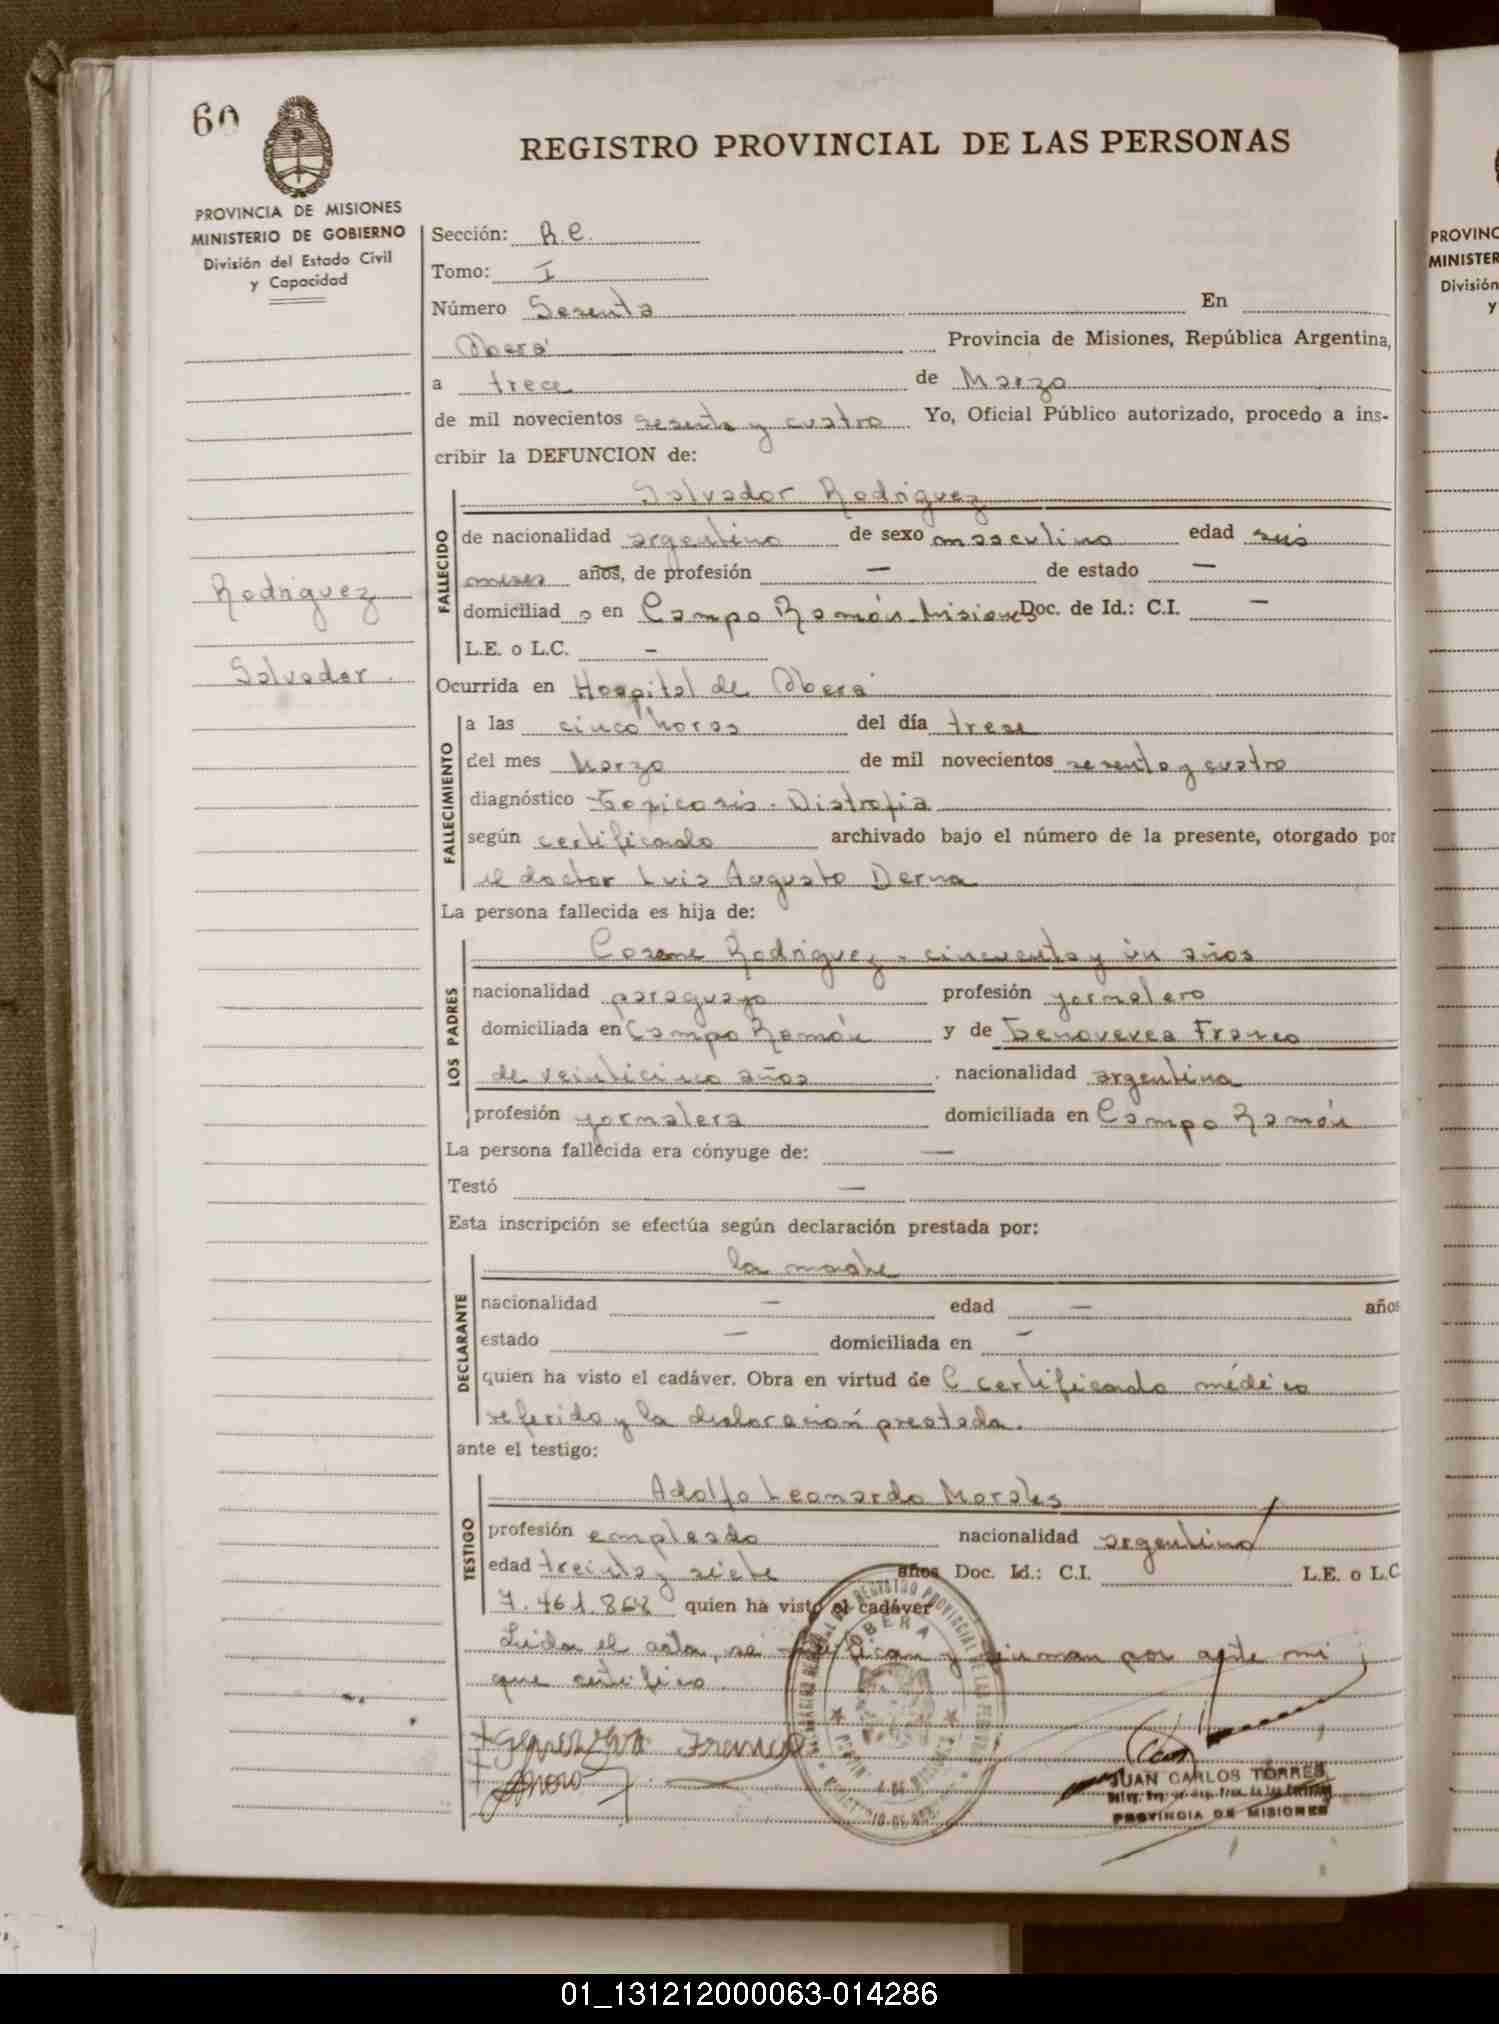 60
REGISTRO PROVINCIAL DE LAS PERSONAS
PROVINCIA DE MISIONES
MINISTERIO DE GOBIERNO
División del Estado Civil
y Capacidad
Rodriguez
Salvador.
Sección: R.C.
Tomo: I
Número Sesenta En
Oberá Provincia de Misiones, República Argentina,
a trece de Marzo
de mil novecientos sesenta y cuatro Yo, Oficial Público autorizado, procedo a ins-
cribir la DEFUNCION de:
FALLECIDO
Salvador Rodriguez
de nacionalidad argentino de sexo masculino edad seis
meses años, de profesión — de estado —
domiciliad o en Campo Ramón Misiones Doc. de Id.: C.I. —
L.E. o L.C. -
Ocurrida en Hospital de Oberá
FALLECIMIENTO
a las cinco horas del día trece
del mes Marzo de mil novecientos sesenta y cuatro
diagnóstico Toxicosis. Distrofia
según certificado archivado bajo el número de la presente, otorgado por
el doctor Luis Augusto Derna
La persona fallecida es hija de:
LOS PADRES
Rodriguez, cincuenta y ún años
nacionalidad paraguayo profesión jornalero
domiciliada en Campo Ramón y de Genoveva Franco
de veinticinco años. nacionalidad argentina
profesión jornalera domiciliada en Campo Ramón
La persona fallecida era cónyuge de: —
Testó —
Esta inscripción se efectúa según declaración prestada por:
DECLARANTE
la madre
nacionalidad — edad — años
estado — domiciliada en -
quien ha visto el cadáver. Obra en virtud de certificado médico
referido y la declaración prestada.
ante el testigo:
TESTIGO
Adolfo Leonardo Morales
profesión empleado nacionalidad argentino
edad treinta y siete años Doc. Id.: C.I. L.E. o L.C
7.461.868 quien ha visto el cadáver
Leida el acta, se ratifican y firman por ante mi
que certifico.
Genoveva Franco
OBERA
JUAN CARLOS TORRES
PROVINCIA DE MISIONES
PROVINC
MINISTER
División
y
01_131212000063-014286